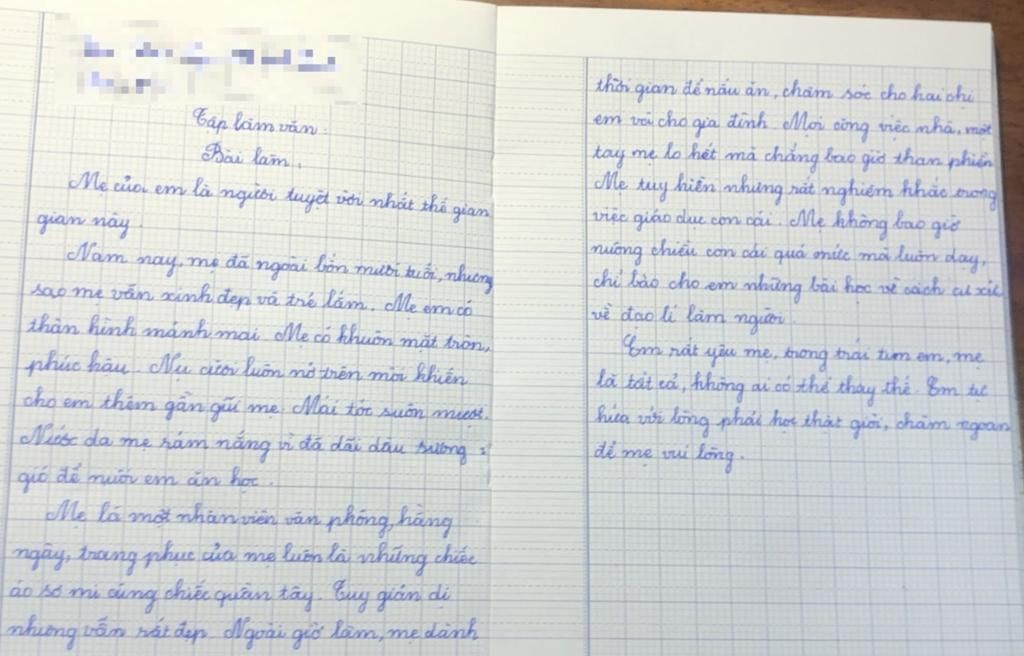 Tập làm văn:
Bài làm.
Mẹ của em là người tuyệt vời nhất thế gian
gian này.
Năm nay, mẹ đã ngoài bốn mươi tuổi, nhưng
sao mẹ vẫn xinh đẹp và trẻ lắm. Mẹ em có
thân hình mảnh mai. Mẹ có khuôn mặt tròn,
phúc hậu. Nụ cười luôn nở trên môi khiến
cho em thêm gần gũi mẹ. Mái tóc suôn mượt.
Nước da mẹ rám nắng vì đã dãi dầu sương
gió để nuôi em ăn học.
Mẹ là một nhân viên văn phòng, hằng
ngày, trang phục của mẹ luôn là những chiếc
áo sơ mi cùng chiếc quần tây. Tuy giản dị
nhưng vẫn rất đẹp. Ngoài giờ làm, mẹ dành
thời gian để nấu ăn, chăm sóc cho hai chị
em và cho gia đình. Mọi công việc nhà, một
tay mẹ lo hết mà chẳng bao giờ than phiền
Mẹ tuy hiền nhưng rất nghiêm khắc trong
việc giáo dục con cái. Mẹ không bao giờ
nuông chiều con cái quá mức mà luôn dạy,
chỉ bảo cho em những bài học về cách cư xử,
về đạo lí làm người.
Em rất yêu mẹ, trong trái tim em, mẹ
là tất cả, không ai có thể thay thế. Em tự
hứa với lòng phải học thật giỏi, chăm ngoan
để mẹ vui lòng.